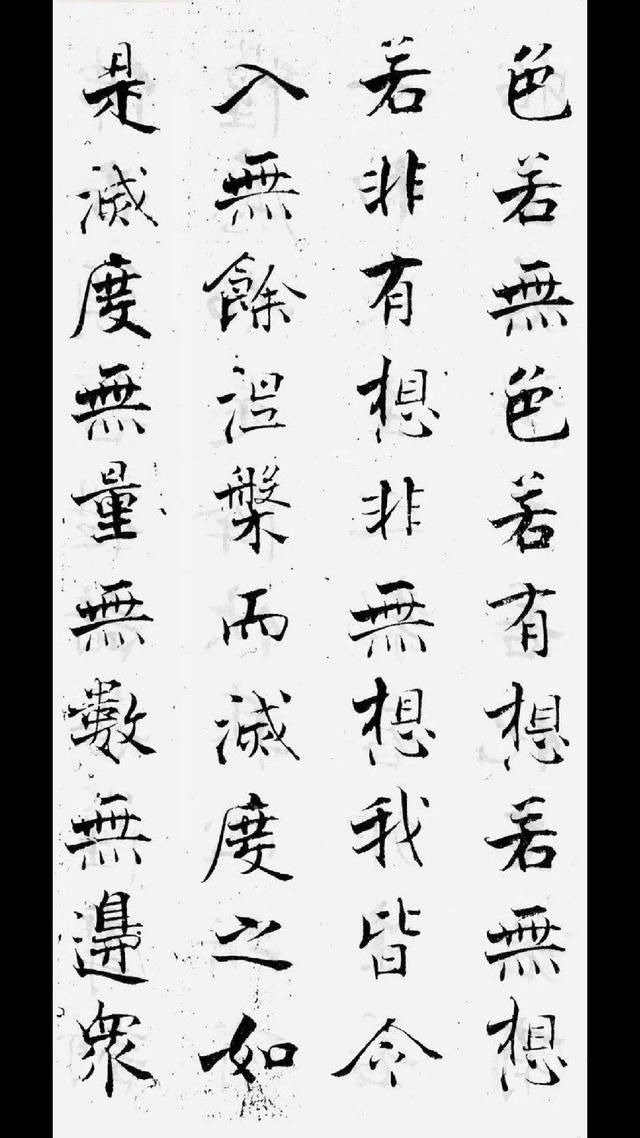 色若無色若有想若無想
若非有想非無想我皆令
入無餘涅槃而滅度之如
是滅度無量無數無邊眾